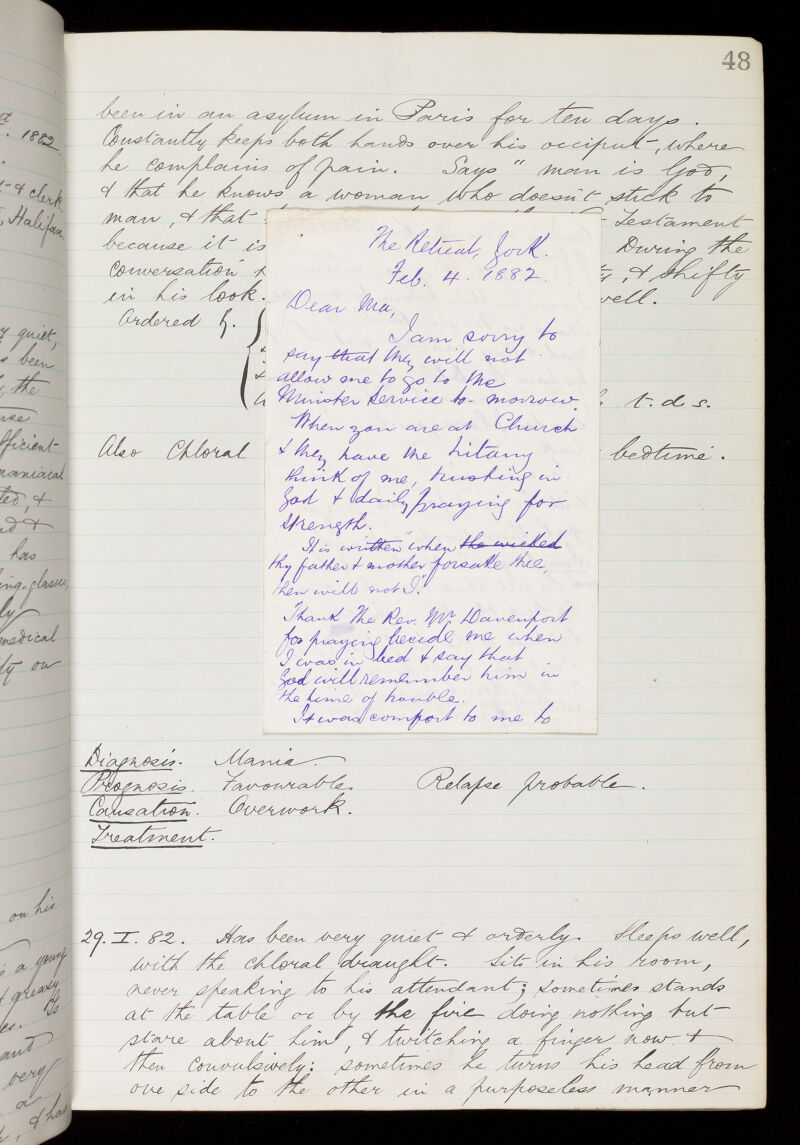 48
been in an asylum in Paris for ten days.
Constantly keeps both hands over his occiput, where
he complains of pain. Says "man is God,
& that he knows a woman who doesn't stick to
man, & that Testament
because it is During the
conversation & shifty
in his look. well.
Ordered
t.d.s.
Also Chloral bedtime.
The Retreat, York.
Feb. 4. 1882.
Dear Ma,
I am sorry to
say that they will not
allow me to go to the
Minister Service to-morrow.
When you are at Church
& they have the Litany
think of me, trusting in
God & daily praying for
strength.
It is written "when the wicked
thy father & mother forsake thee,
then will not I.
Thank The Rev. Mr Davenport
for praying beside me when
I was in bed & say that
God will remember him in
the time of trouble.
It was comfort to me to
Diagnosis. Mania.
Prognosis. Favourable. Relapse probable.
Causation. Overwork.
Treatment.
29.I.82. Has been very quiet & orderly. Sleeps well,
with the chloral draught. Sits in his room,
never speaking to his attendant; sometimes stands
at the table or by the fire doing nothing but
stare about him, & twitching a finger now &
then convulsively: sometimes he turns his head from
one side to the other in a purposeless manner
1882.
& clerk.
Halifax.
quiet,
been
the
maniacal
has
medical
on his
a young
greasy
and
very